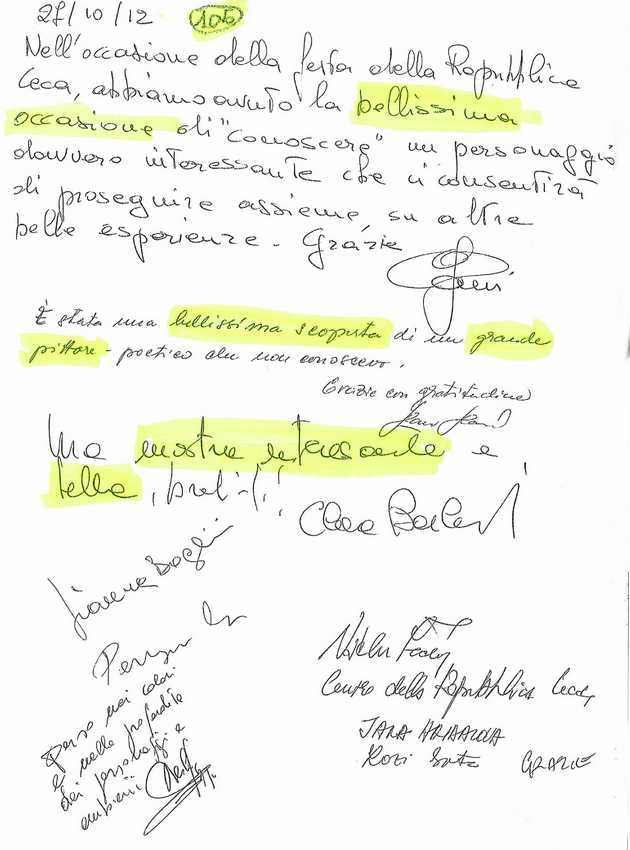 27/10/12 106
Nell'occasione della festa della Repubblica
Ceca, abbiamo avuto la bellissima
occasione di "conoscere" un personaggio
davvero interessante che ci consentirà
di proseguire assieme su altre
belle esperienze. Grazie
È stata una bellissima scoperta di un grande
pittore - poetico che non conoscevo.
Grazie con gratitudine
Una mostra interessante e
bella,
Perso nei colori
e nelle profondità
dei personaggi e
ambienti
Centro della Repubblica Ceca
GRAZIE